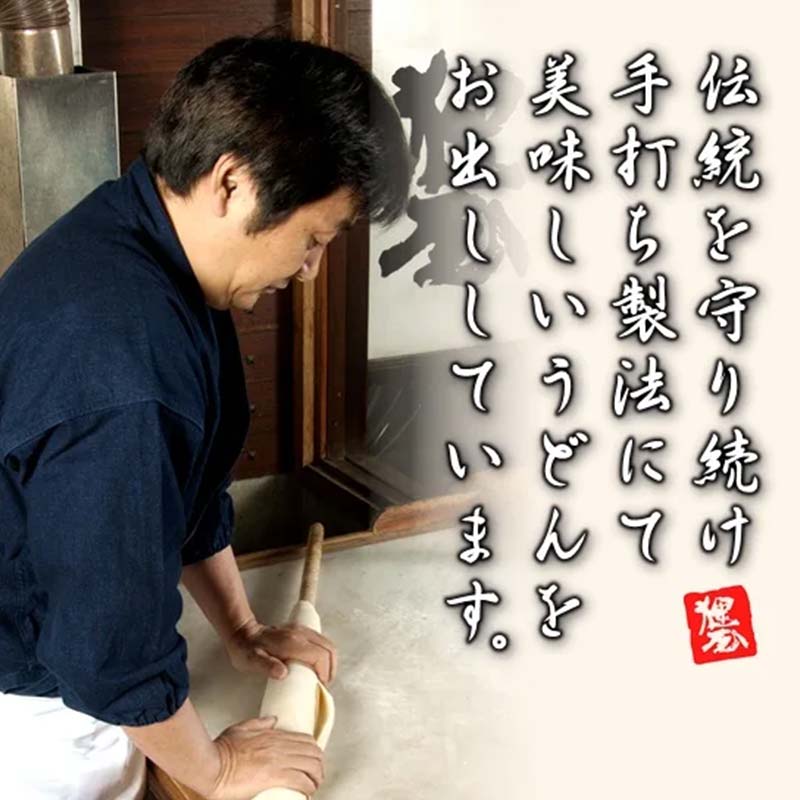 伝統を守り続け
手打ち製法にて
美味しいうどんを
お出ししています。